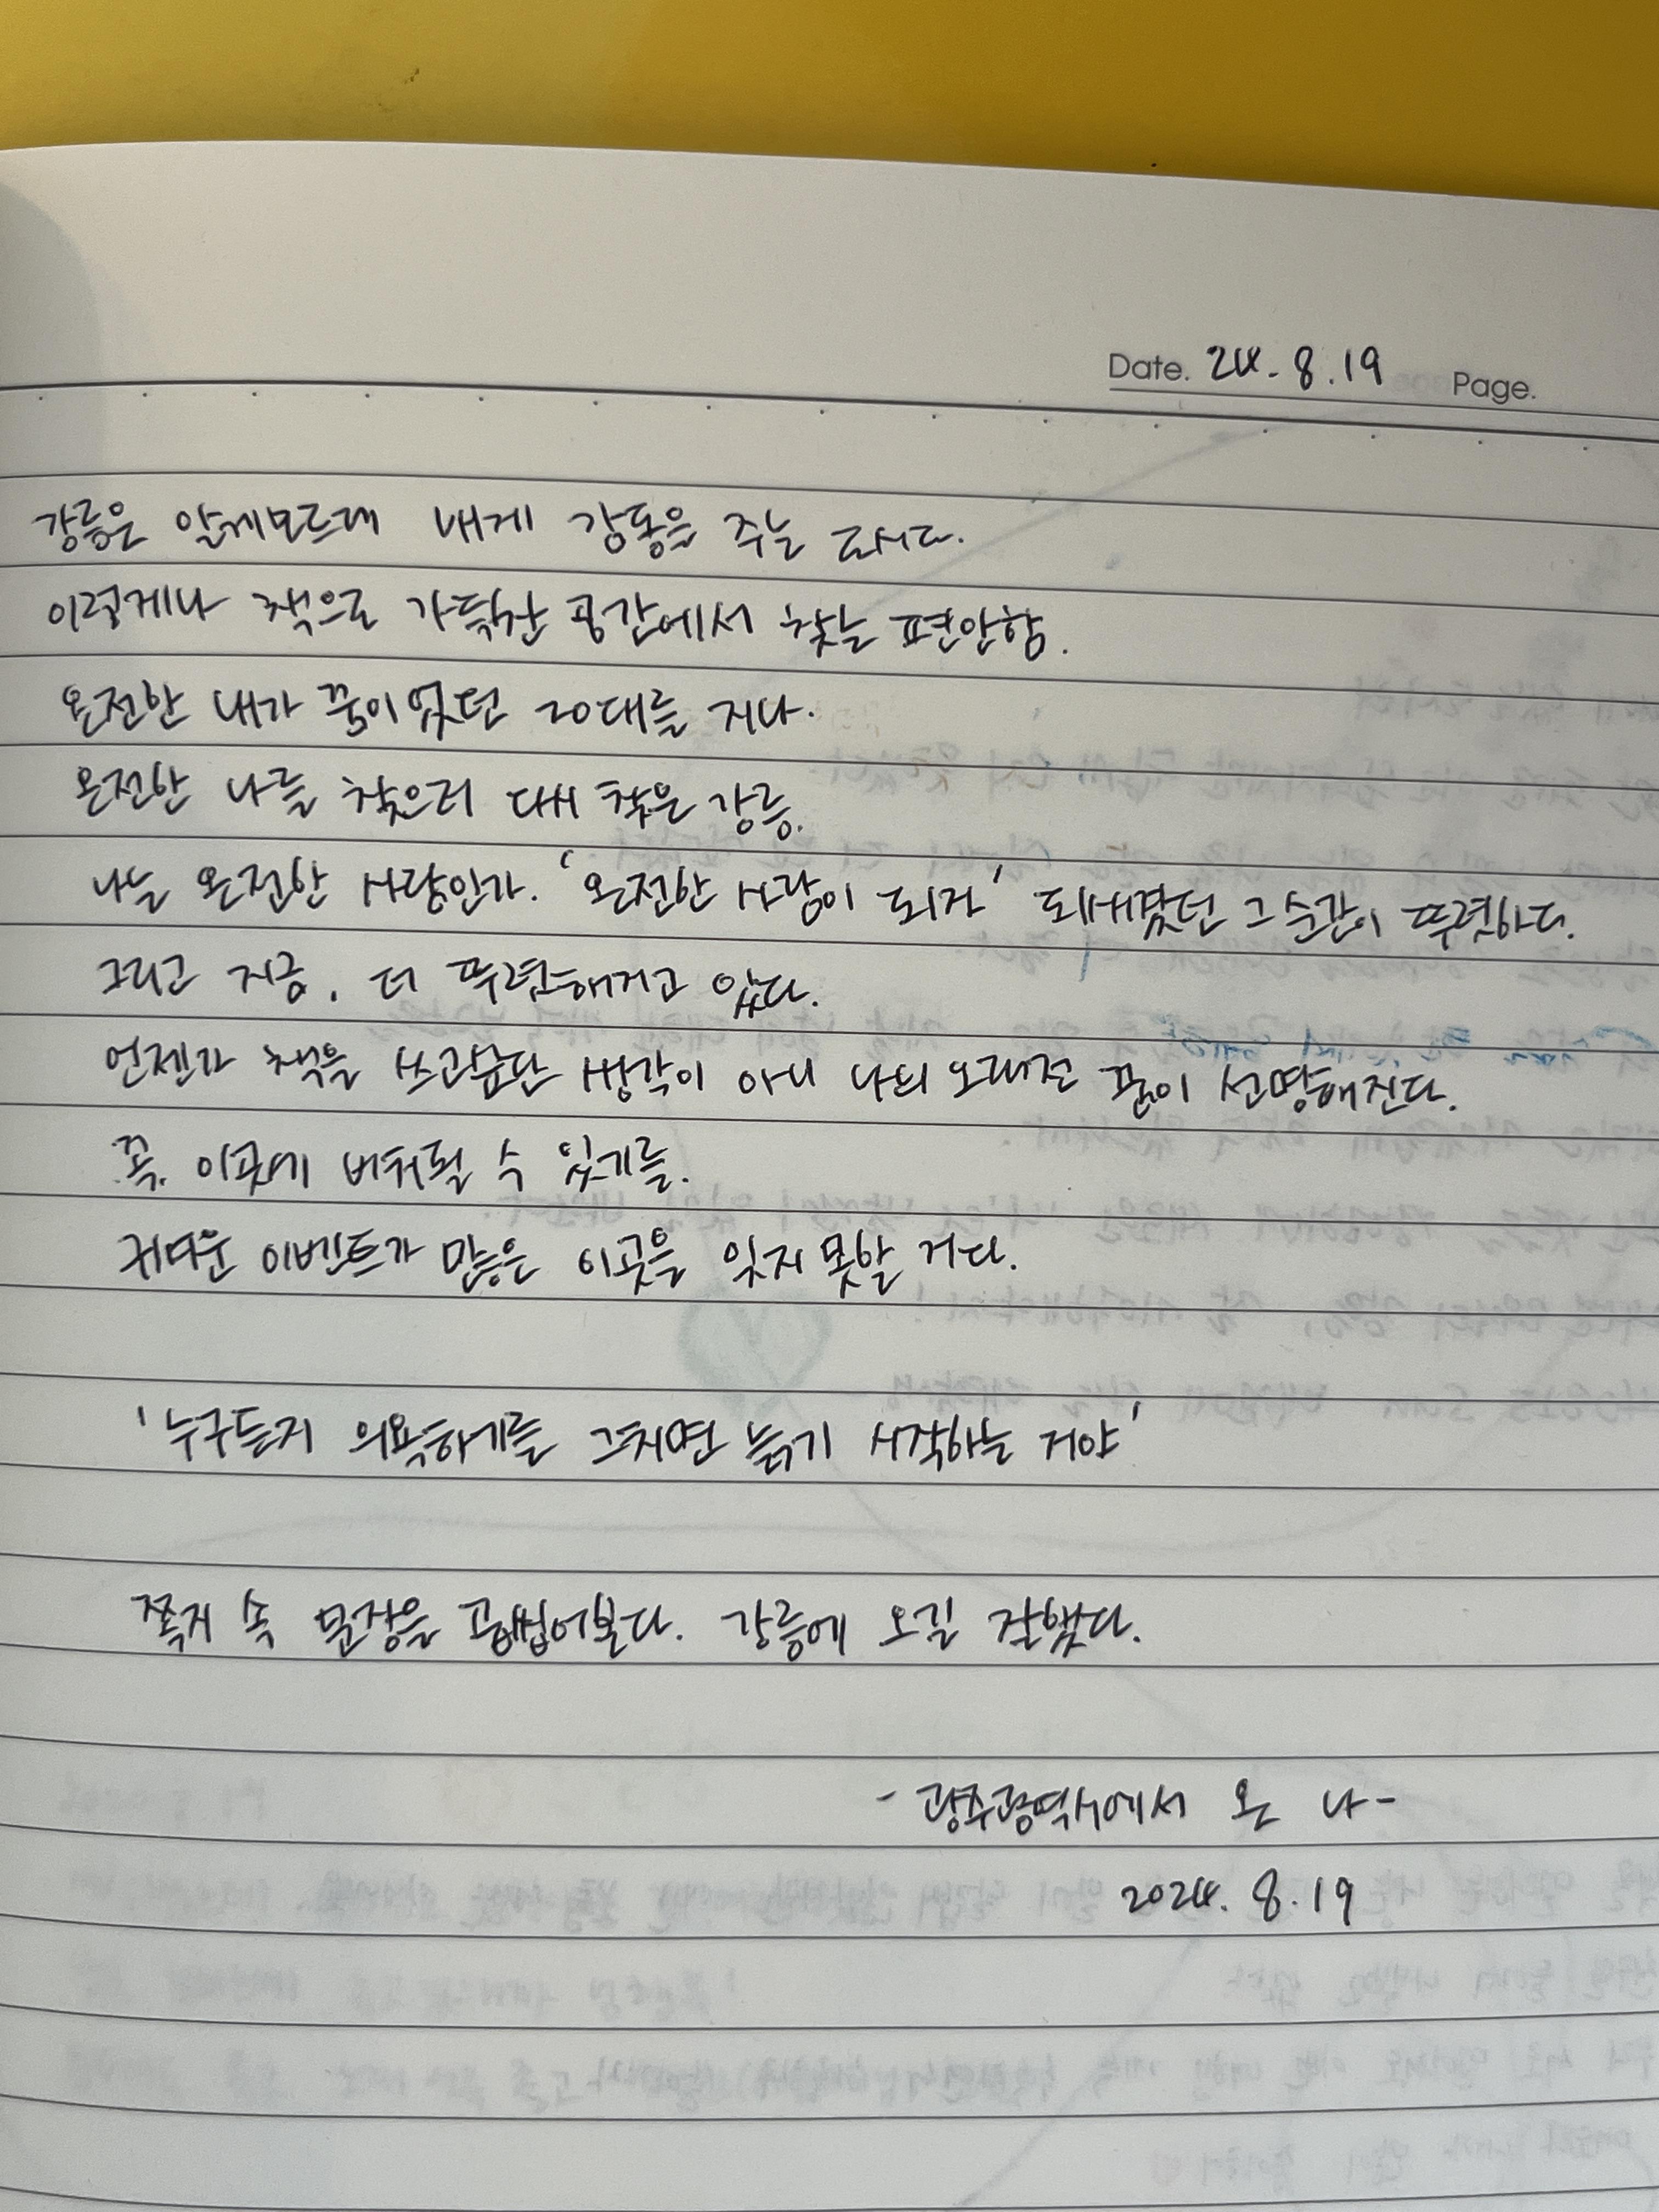 Date. 24. 8. 19 Page.
강릉은 알게모르게 내게 감동을 주는 도시다.
이렇게나 책으로 가득한 공간에서 찾는 편안함.
온전한 내가 꿈이었던 20대를 지나.
온전한 나를 찾으러 다시 찾은 강릉.
나는 온전한 사람인가. '온전한 사람이 되자' 되새겼던 그 순간이 뚜렷하다.
그리고 지금, 더 뚜렷해지고 있다.
언젠가 책을 쓰고싶단 생각이 아니 나의 오래전 꿈이 선명해진다.
꼭. 이곳에 비취될 수 있기를.
귀여운 이벤트가 많은 이곳을 잊지 못할 거다.
'누구든지 의욕하기를 그치면 늙기 시작하는 거야'
쪽지 속 문장을 곱씹어본다. 강릉에 오길 잘했다.
- 광주광역시에서 온 나 -
2024. 8. 19